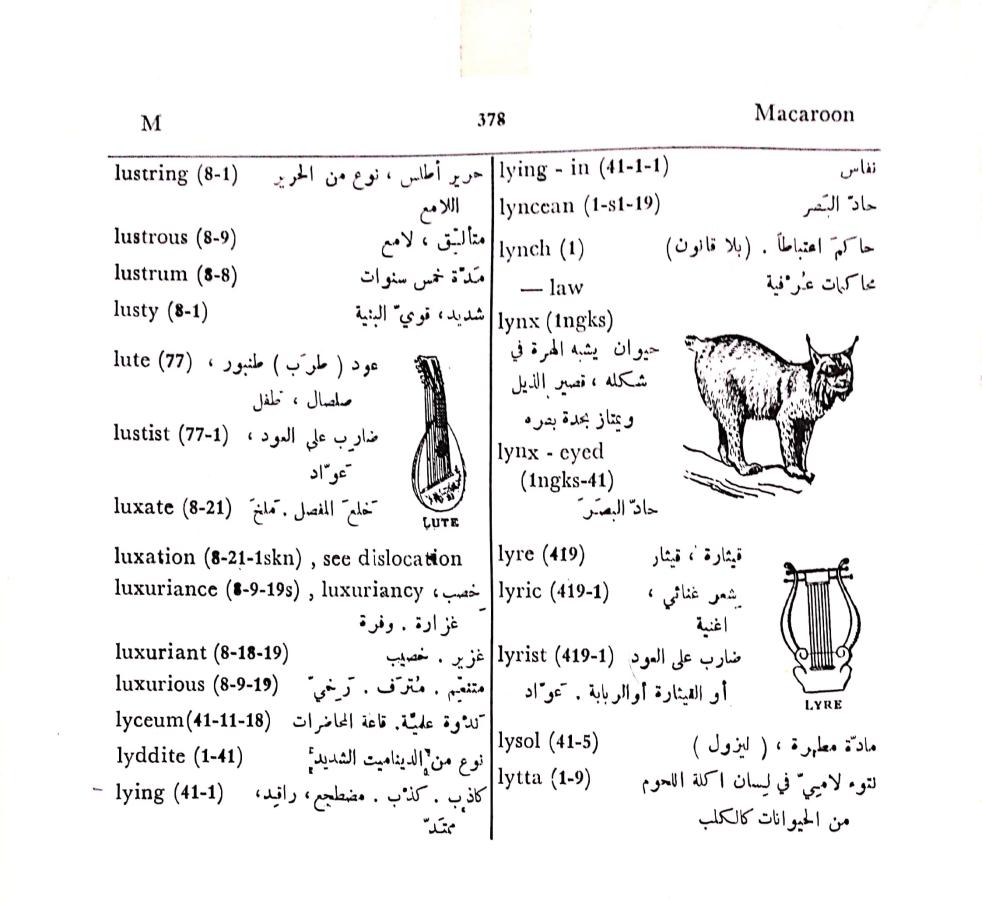 M 378 Macaroon
lustring (8-1) حرير أطلس ، نوع من الحرير
اللامع
lustrous (8-9) متألّق ، لامع
lustrum (8-8) مَدّة خمس سنوات
lusty (8-1) شديد، قويّ البنية
lute (77) عود ( طرَب ) طنبور ،
صلصال ، طفل
lustist (77-1) ضارب على العود ،
عوّاد
luxate (8-21) خلعَ المفصل . ملخَ
LUTE
luxation (8-21-1skn) , see dislocation
luxuriance (8-9-19s) , luxuriancy خصب،
غزارة . وفرة
luxuriant (8-18-19) غزير . خصيب
luxurious (8-9-19) متنعّم . مُترَف . رَخيّ
lyceum(41-11-18) نَدوة علميّة. قاعة المحاضرات
lyddite (1-41) نوع من الديناميت الشديد
– lying (41-1) كاذِب . كذْب . مضطجع، راقِد،
ممتَدّ
lying - in (41-1-1) نفاس
lyncean (1-s1-19) حادّ البَصر
lynch (1) حاكمَ اعتباطاً . (بلا قانون)
— law محاكمات عُرْفية
lynx (1ngks)
حيوان يشبه الهرة في
شكله ، قصير الذيل
ويمتاز بحدة بصره
lynx - eyed
(1ngks-41)
حادّ البصَرَ
lyre (419) قيثارة ، قيثار
lyric (419-1) شِعر غنائي ،
اغنية
lyrist (419-1) ضارب على العود
أو القيثارة أوالربابة . عوّاد
LYRE
lysol (41-5) مادّة مطهرة ، ( ليزول )
lytta (1-9) نتوء لاميّ في لِسان اكلة اللحوم
من الحيوانات كالكلب